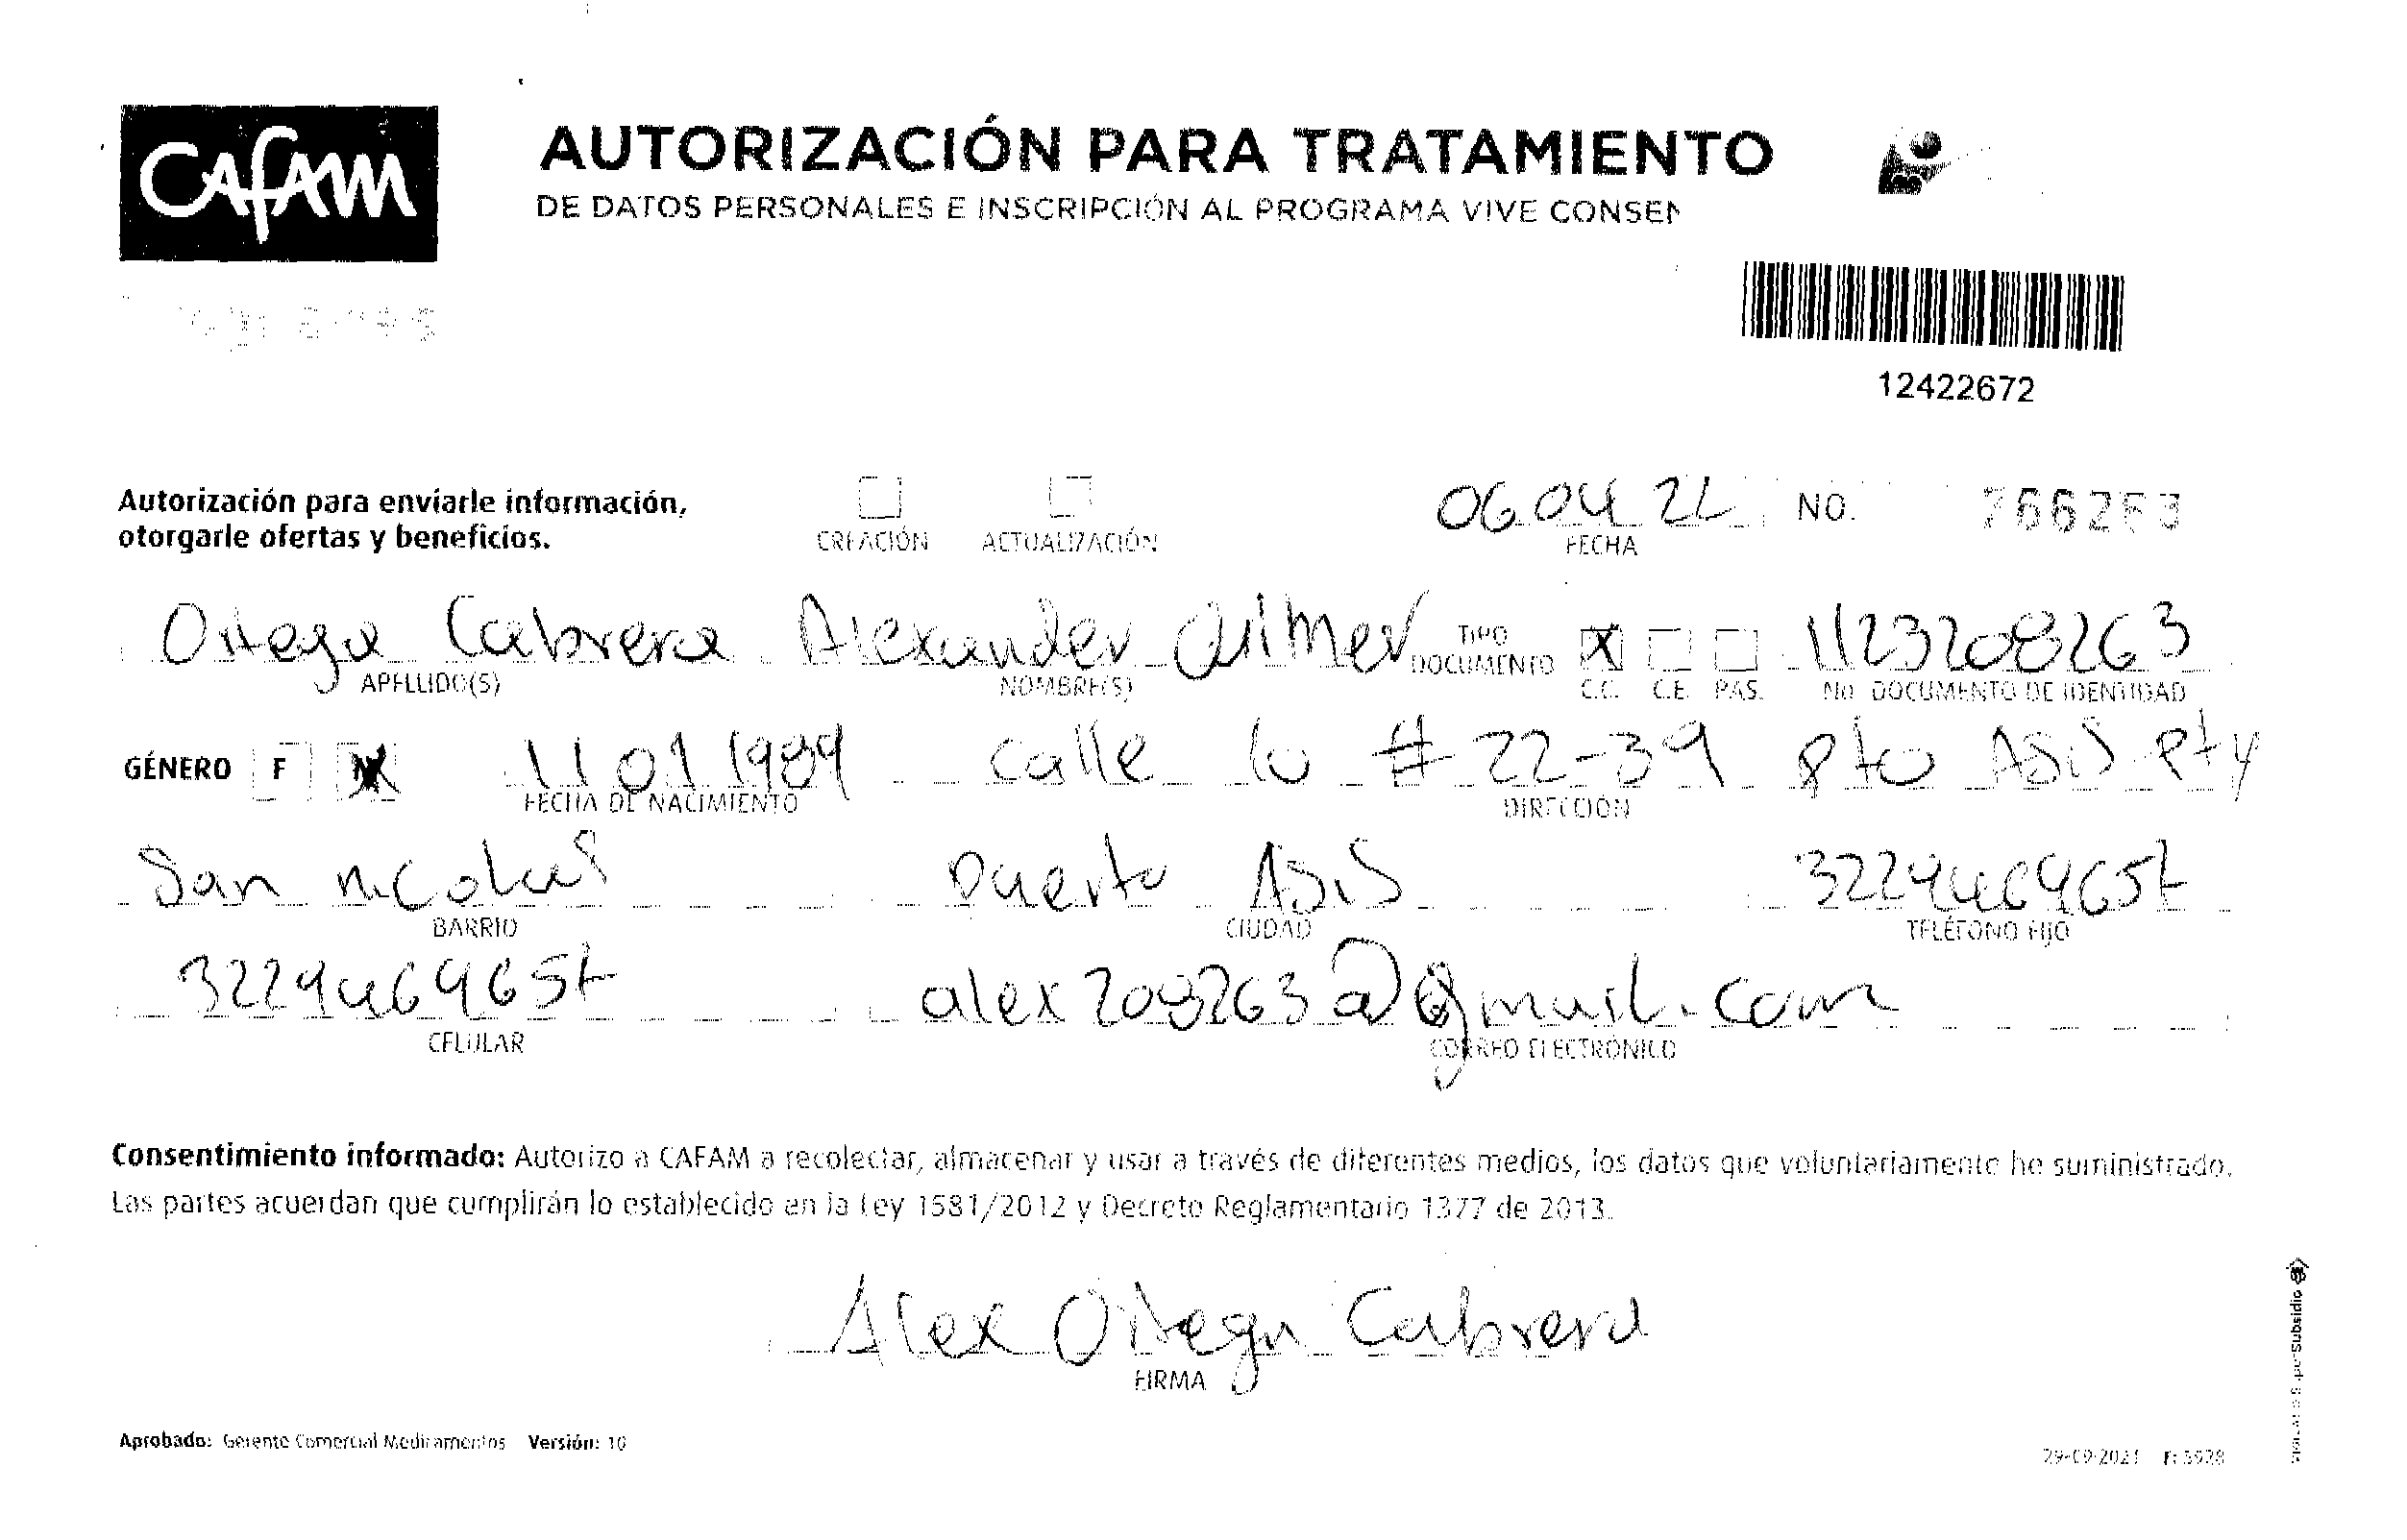 CAFAM
AUTORIZACIÓN PARA TRATAMIENTO
DE DATOS PERSONALES E INSCRIPCIÓN AL PROGRAMA VIVE CONSEN
12422672
Autorización para enviarle información,
otorgarle ofertas y beneficios.
CREACIÓN ACTUALIZACIÓN
06 04 22 NO.
FECHA
Ortega Cabrera Alexander TIPO DOCUMENTO X 1123208263
APELLIDO(S) NOMBRE(S) C.C. C.E. PAS. No. DOCUMENTO DE IDENTIDAD
GÉNERO F M 11 01 1989 calle 10 # 22-39 pto Asis pty
FECHA DE NACIMIENTO DIRECCIÓN
San nicolas Puerto Asis
BARRIO CIUDAD TELÉFONO FIJO
alex208263@gmail.com
CELULAR CORREO ELECTRÓNICO
Consentimiento informado: Autorizo a CAFAM a recolectar, almacenar y usar a través de diferentes medios, los datos que voluntariamente he suministrado.
Las partes acuerdan que cumplirán lo establecido en la Ley 1581/2012 y Decreto Reglamentario 1377 de 2013.
Alex Ortega Cabrera
FIRMA
Aprobado: Gerente Comercial Medicamentos Versión: 10
29-09-2021 F: 5928